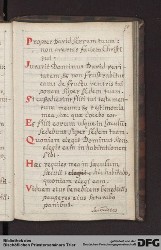 Propter David servum tuum:
non avertas faciem Christi
tui.
Iuravit Dominus David veri
tatem, et non frustrabitur
eum: de fructu ventris tui
ponam super sedem tuam.
Si custodierint filii tui testa
mentum meum, et testimonia
mea haec, quae docebo eos.
Et filii eorum usque in saeculum
sedebunt super sedem tuam.
Quoniam elegit Dominus Sion
elegit eam in habitationem
sibi.
Haec requies mea in saeculum
saeculi: hic habitabo,
quoniam elegi eam.
Viduam eius benedicens benedicam,
pauperes eius saturabo
panibus.
Bibliothek des
Bischöflichen Priesterseminars Trier
gefördert durch
DFG
Deutsche Forschungsgemeinschaft